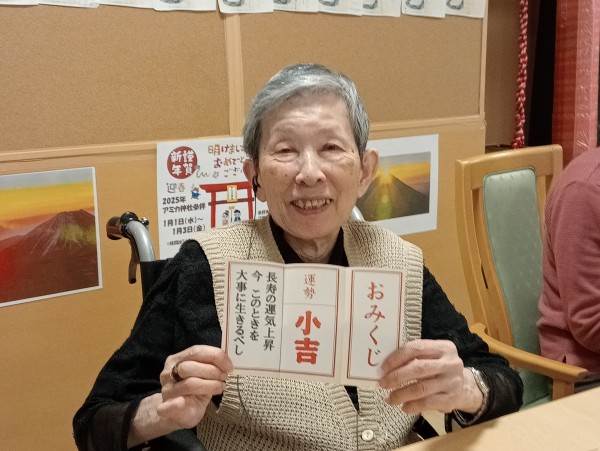 謹賀
新年
明けまして
おめでとう
ござい
迎春
2025年
アミカ神社参拝
1月1日(水)～
1月3日(金)
おみくじ
運勢
小吉
長寿の運気上昇
今 このときを
大事に生きるべし